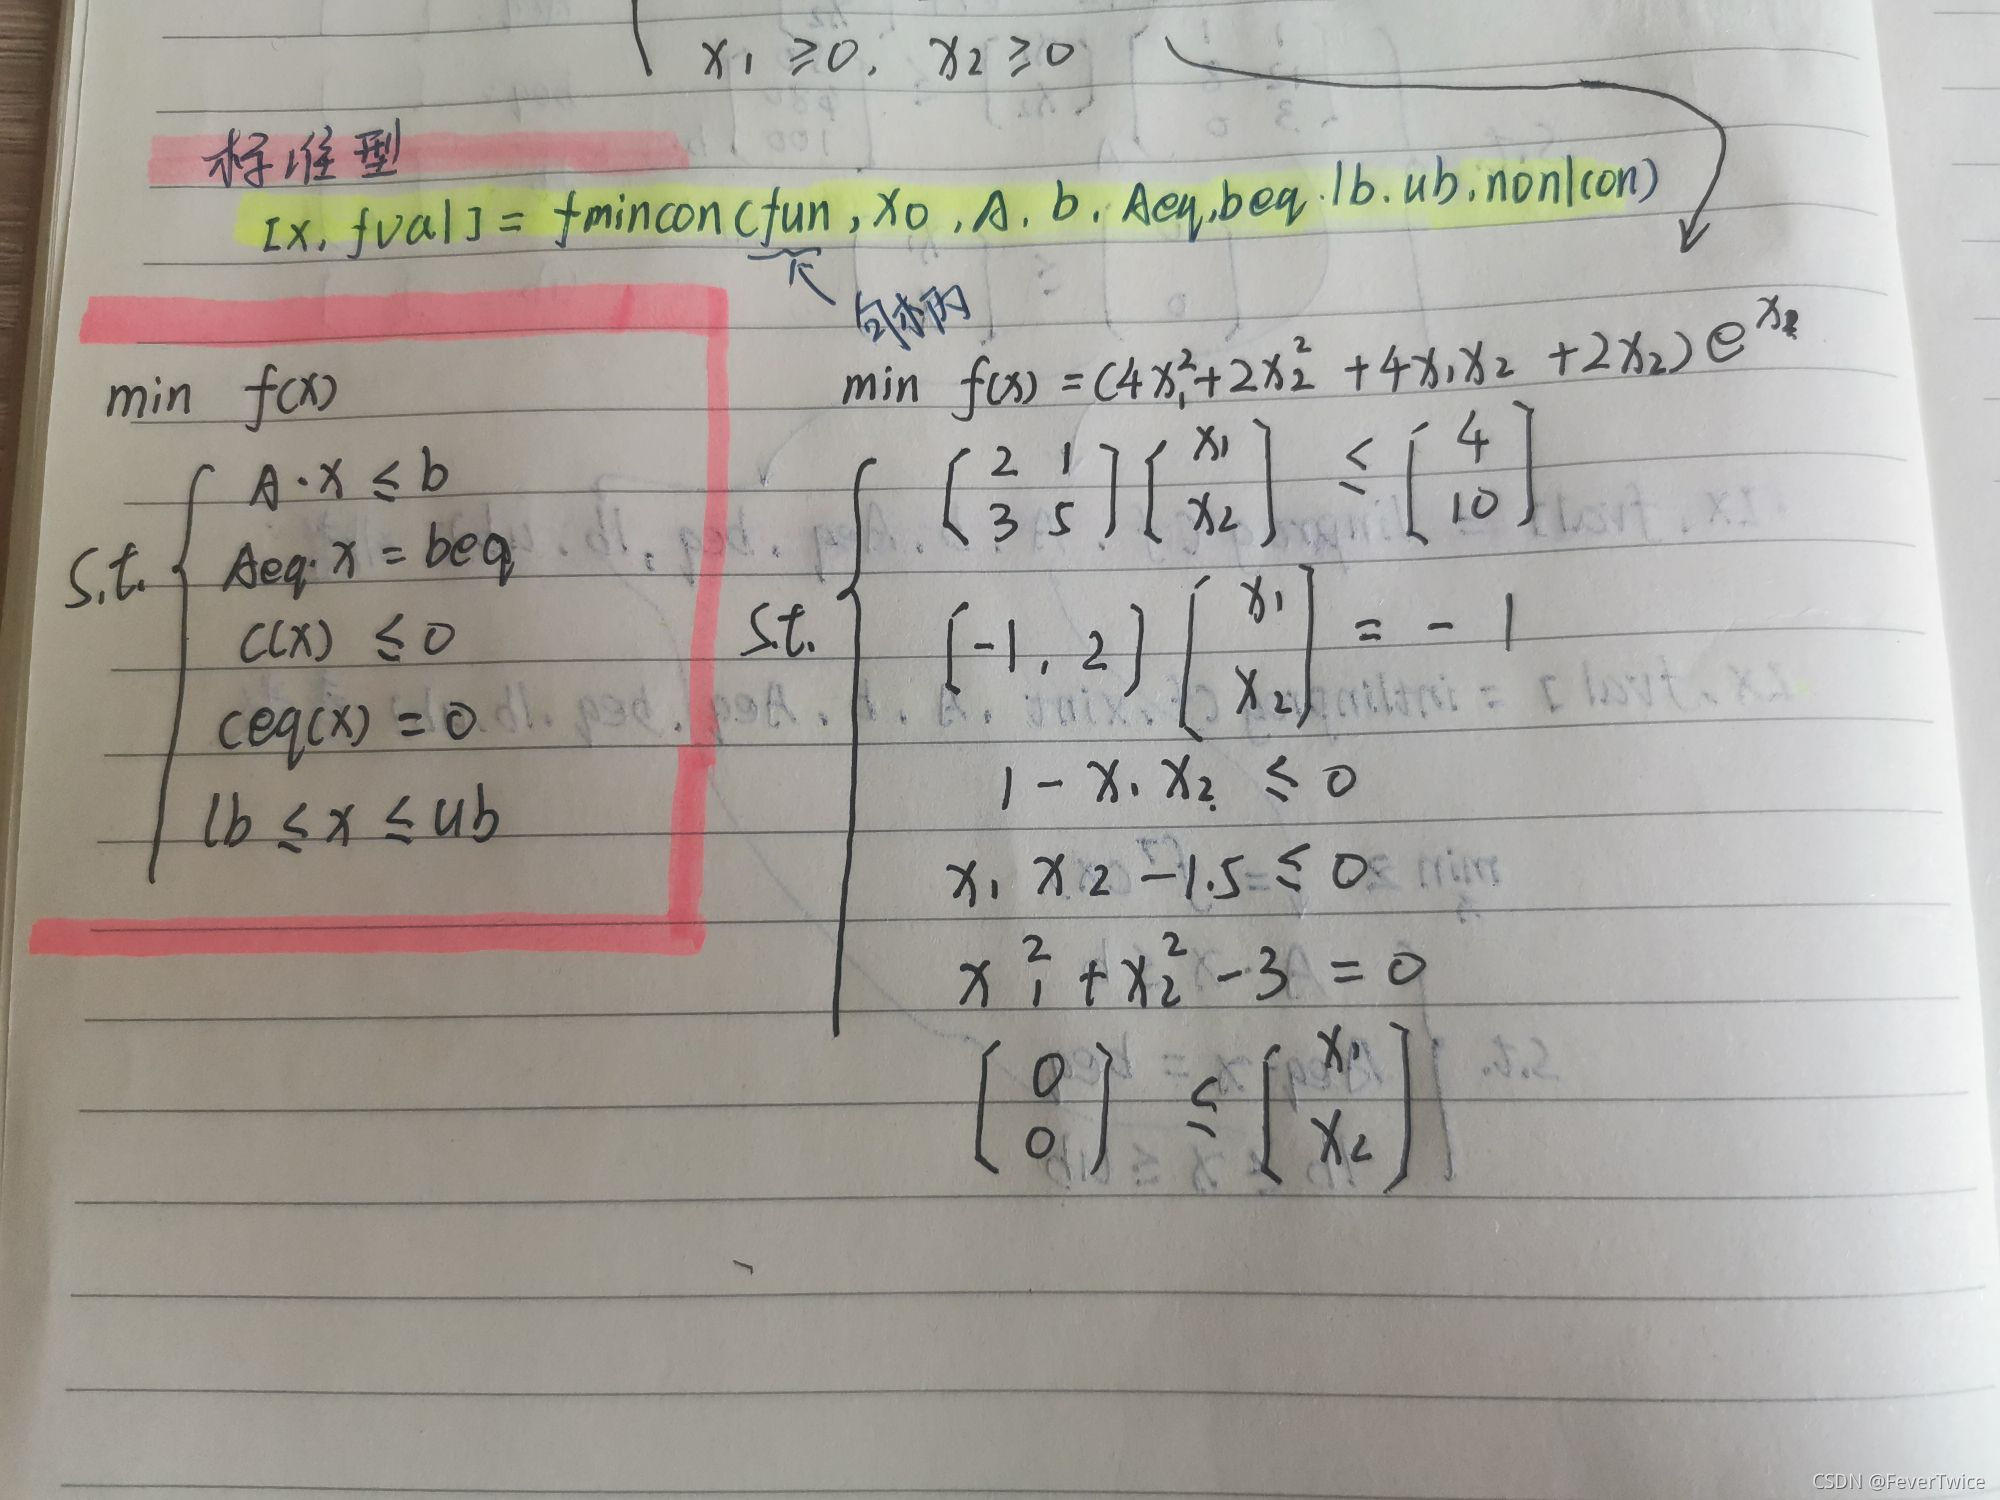 x₁ ≥ 0, x₂ ≥ 0
标准型
[x, fval] = fmincon(fun, x0, A, b, Aeq, beq, lb, ub, nonlcon)
句柄
min f(x)
s.t.
A·x ≤ b
Aeq·x = beq
c(x) ≤ 0
ceq(x) = 0
lb ≤ x ≤ ub
min f(x) = (4x₁² + 2x₂² + 4x₁x₂ + 2x₂) e^x
s.t.
[2 1; 3 5] [x₁; x₂] ≤ [4; 10]
[-1, 2] [x₁; x₂] = -1
1 - x₁x₂ ≤ 0
x₁x₂ - 1.5 ≤ 0
x₁² + x₂² - 3 = 0
[0; 0] ≤ [x₁; x₂]
CSDN @FeverTwice